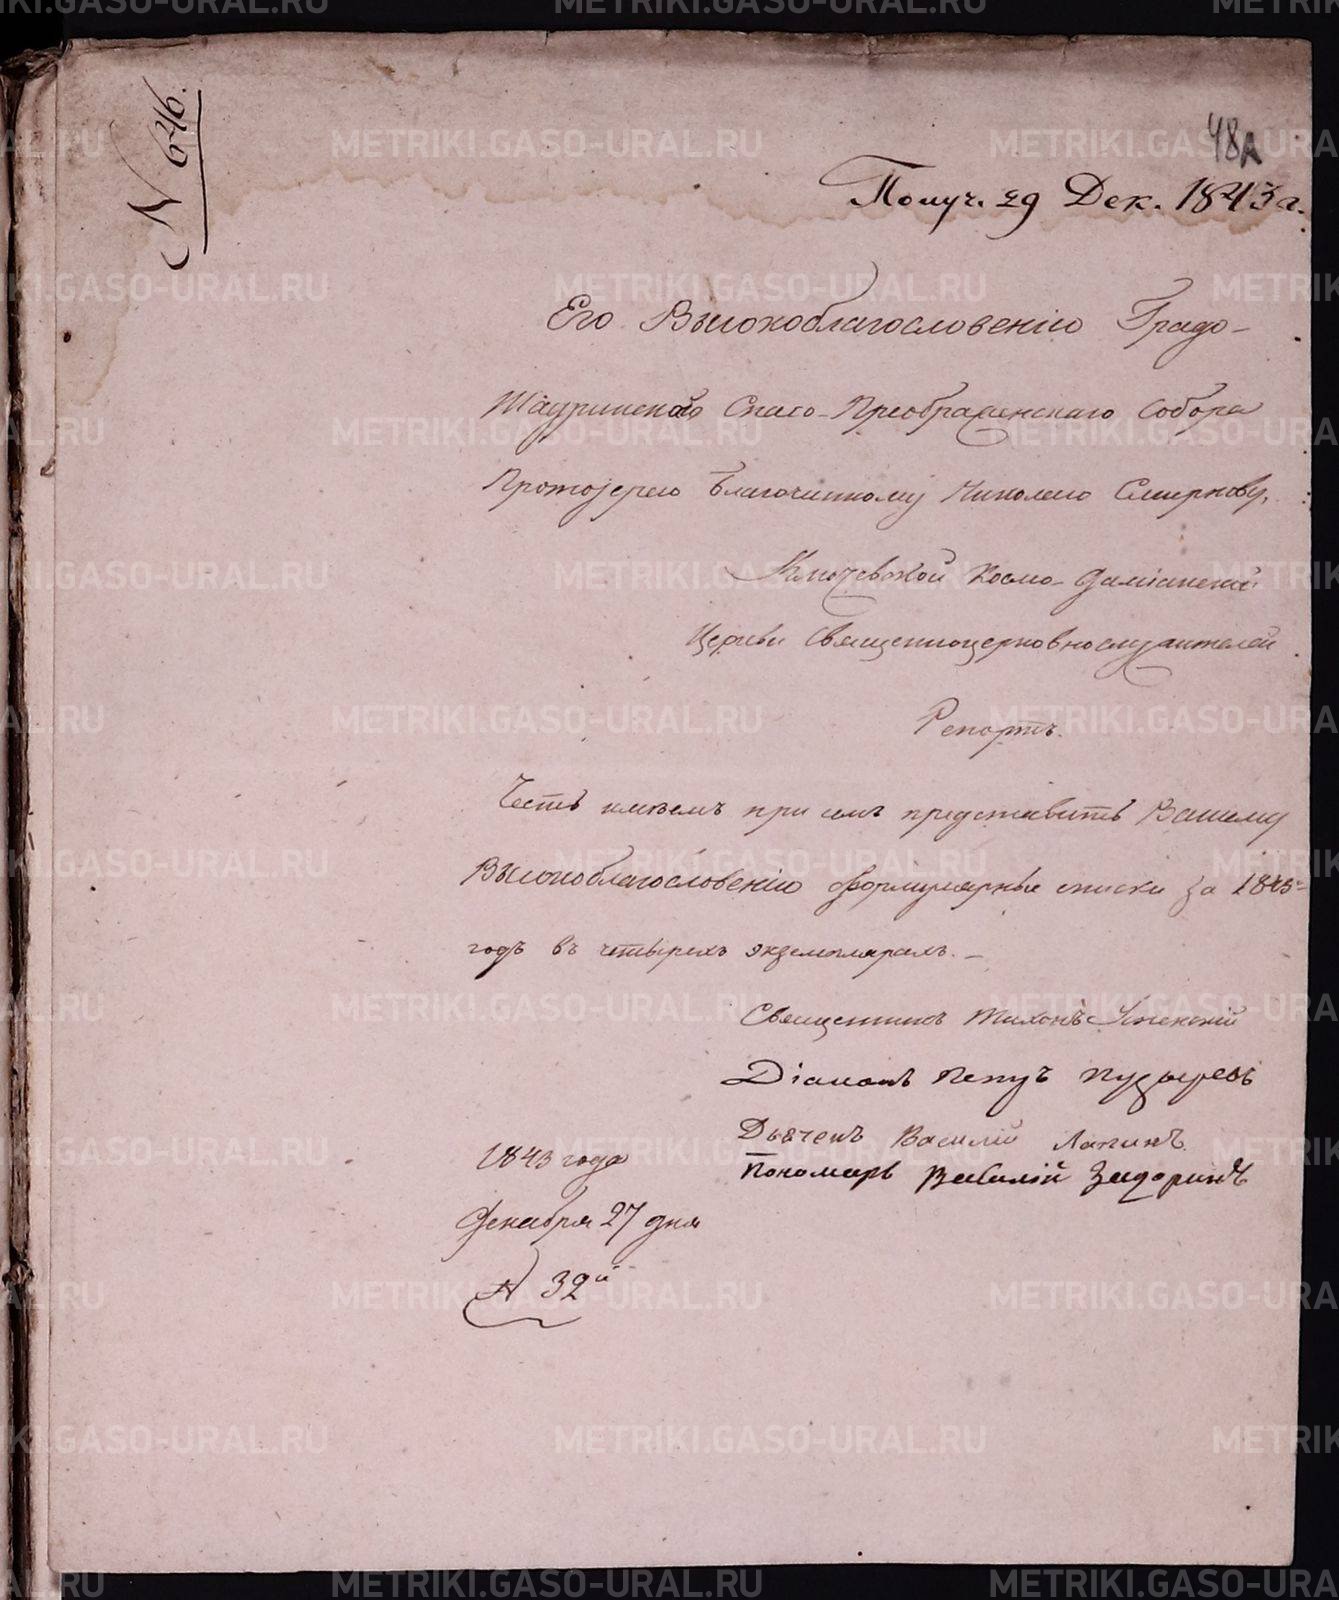 N 646.
48А
Получ. 29 Дек. 1843 г.
Его Высокоблагословенію Градо-
Шадринскаго Спасо-Преображенскаго Собора
Протоіерею Благочинному Николаю Смирнову,
Ключевской Космо-Даміанской
Церкви Священноцерковнослужителей
Репортъ.
Честь имѣемъ при семъ представить Вашему
Высокоблагословенію формулярные списки за 1843й
годъ въ четырехъ экземплярахъ. —
Священникъ Тихонъ Успенскій
Діаконъ Петръ Пузыревъ
Дьячекъ Василій Лапинъ
Пономарь Василій Задоринъ
1843 года
Декабря 27 дня
N 32й
METRIKI.GASO-URAL.RU